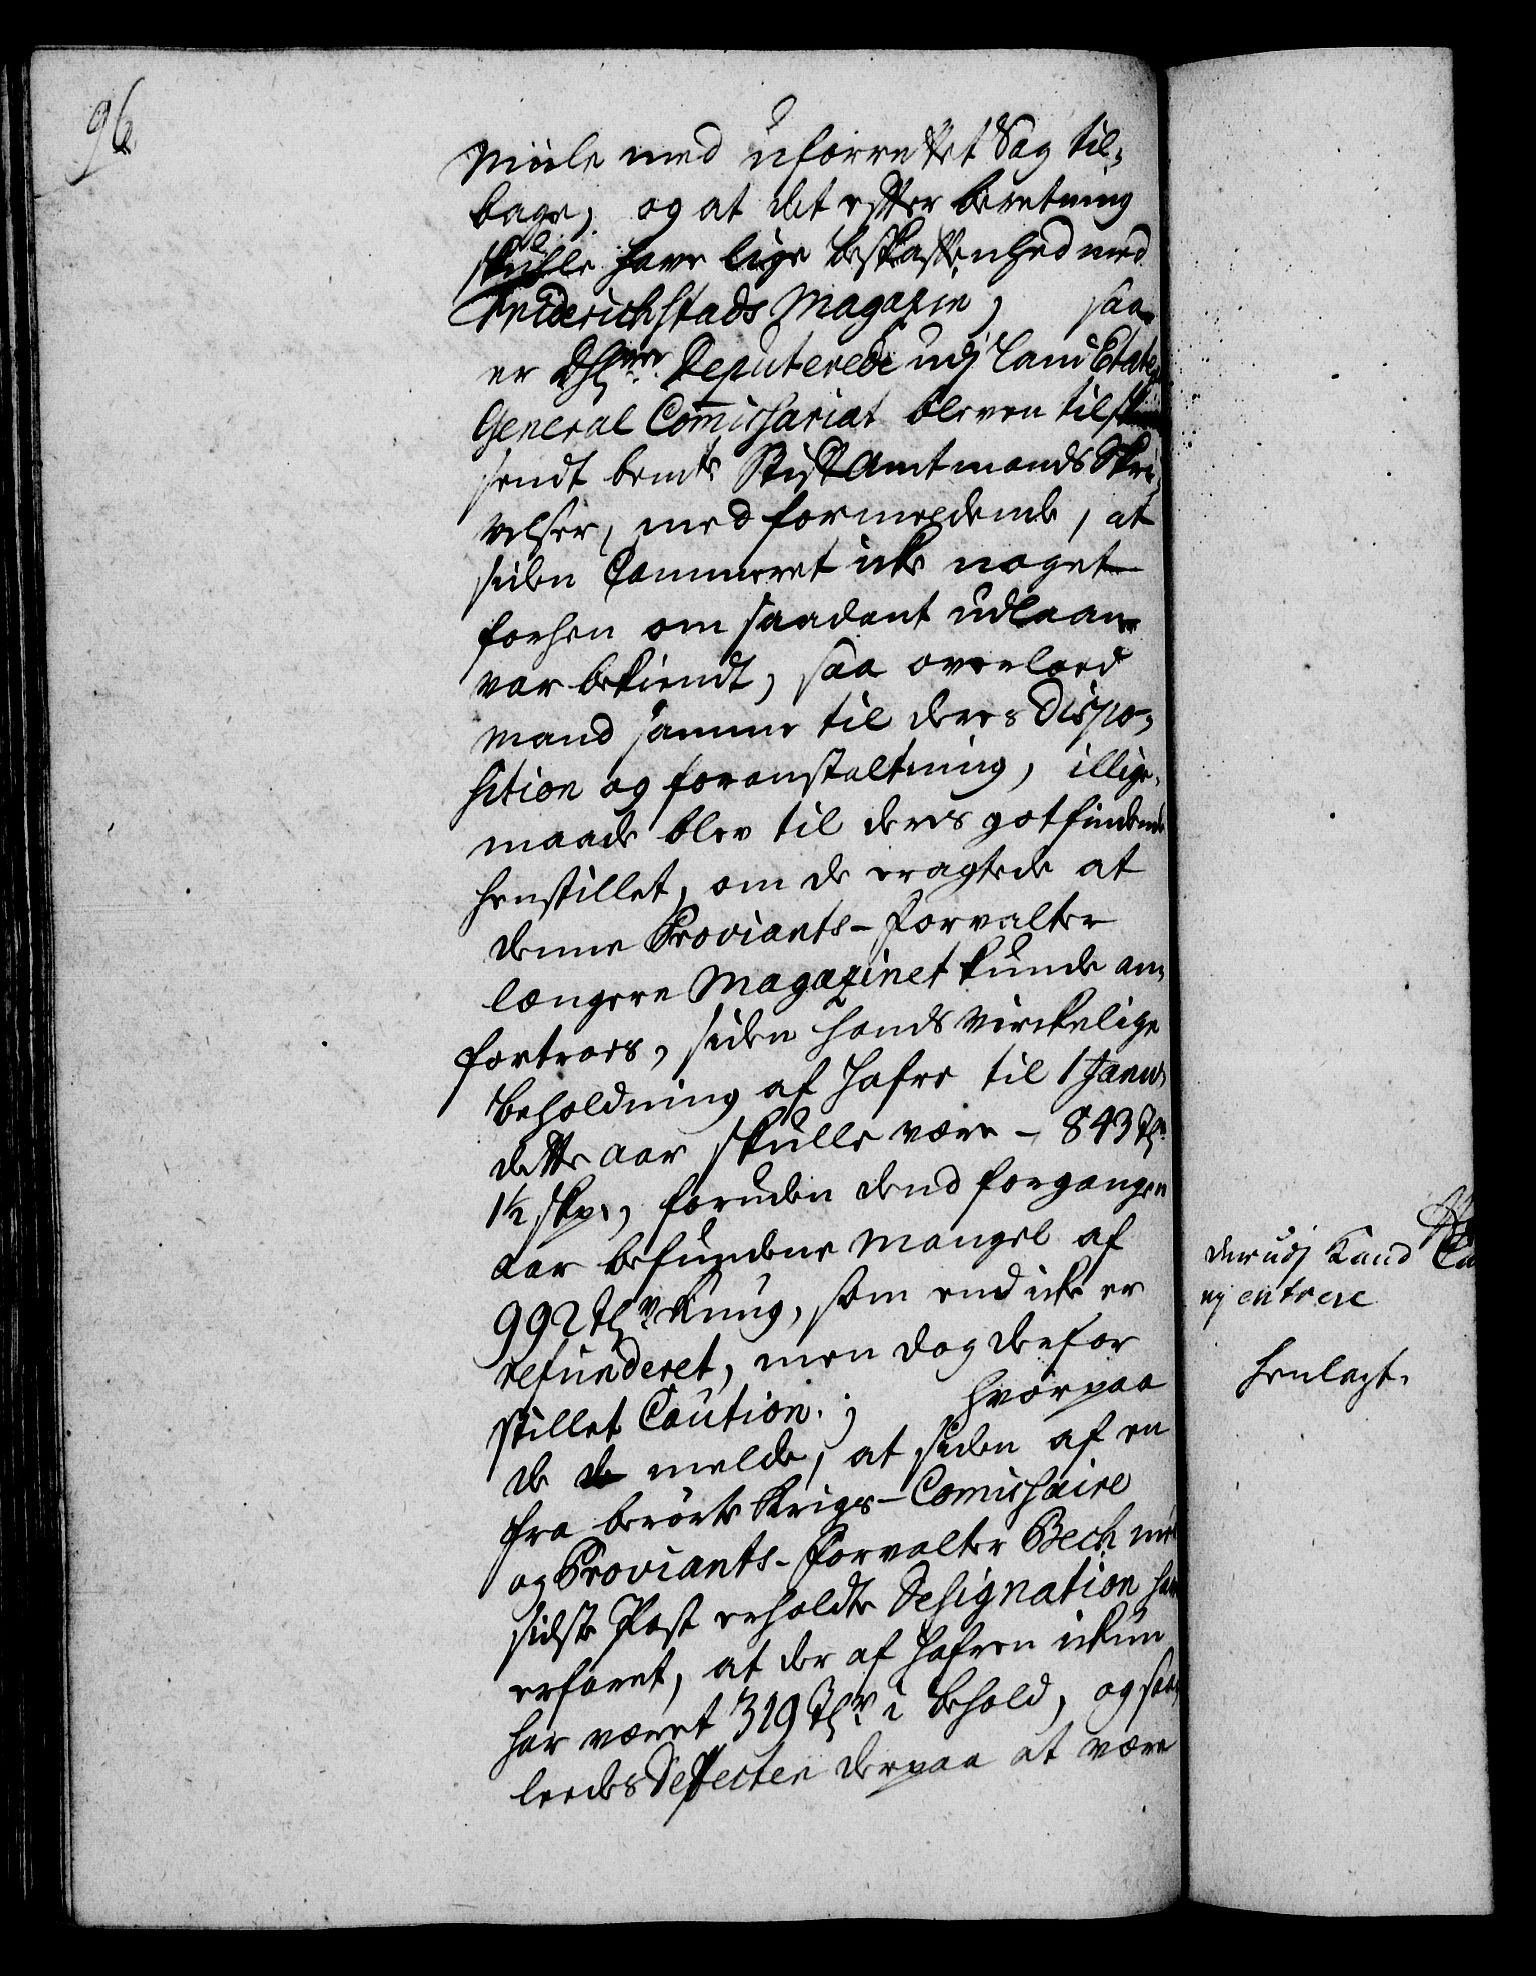 96.
Miile med uforrettet Sag til-
bage, og at det efter beretning
skulle have lige beskaffenhed med
Friderichstads Magazin, saa
er Dhrr. Deputerede udj Land Etatens
General Commissariat bleven til
sendt bemte StiftAmtmands Skri-
velser, med formeldende, at
siden Cammeret icke noget
forhen om saadant udlaan
var bekiendt, saa overlod
mand samme til deres Dispo-
sition og foranstaltning, illige-
maade blev til deres gotfindende
henstillet, om de eragtede at
denne Proviants-forvalter
længere Magazinet kunde an-
fortroes, siden hands virckelige
beholdning af Hafre til 1 Janu
dette aar skulle være - 843 Tr
1½ skp., foruden dend forgangen
aar befundene Mangel af
992 Tr Rug, som end icke er
refunderet, men dog derfor
stillet Caution; hvorpaa
de melde, at siden af en
fra berörte Krigs-Comissaire
og Proviants-Forvalter Bech med
sidste Post erholdte Designation har
erfaret, at der af Hafren ickun
har været 319 Tr i behold, og saa-
leedes Defecten derpaa at være
der udj Kand
ej entrere
henlagt.